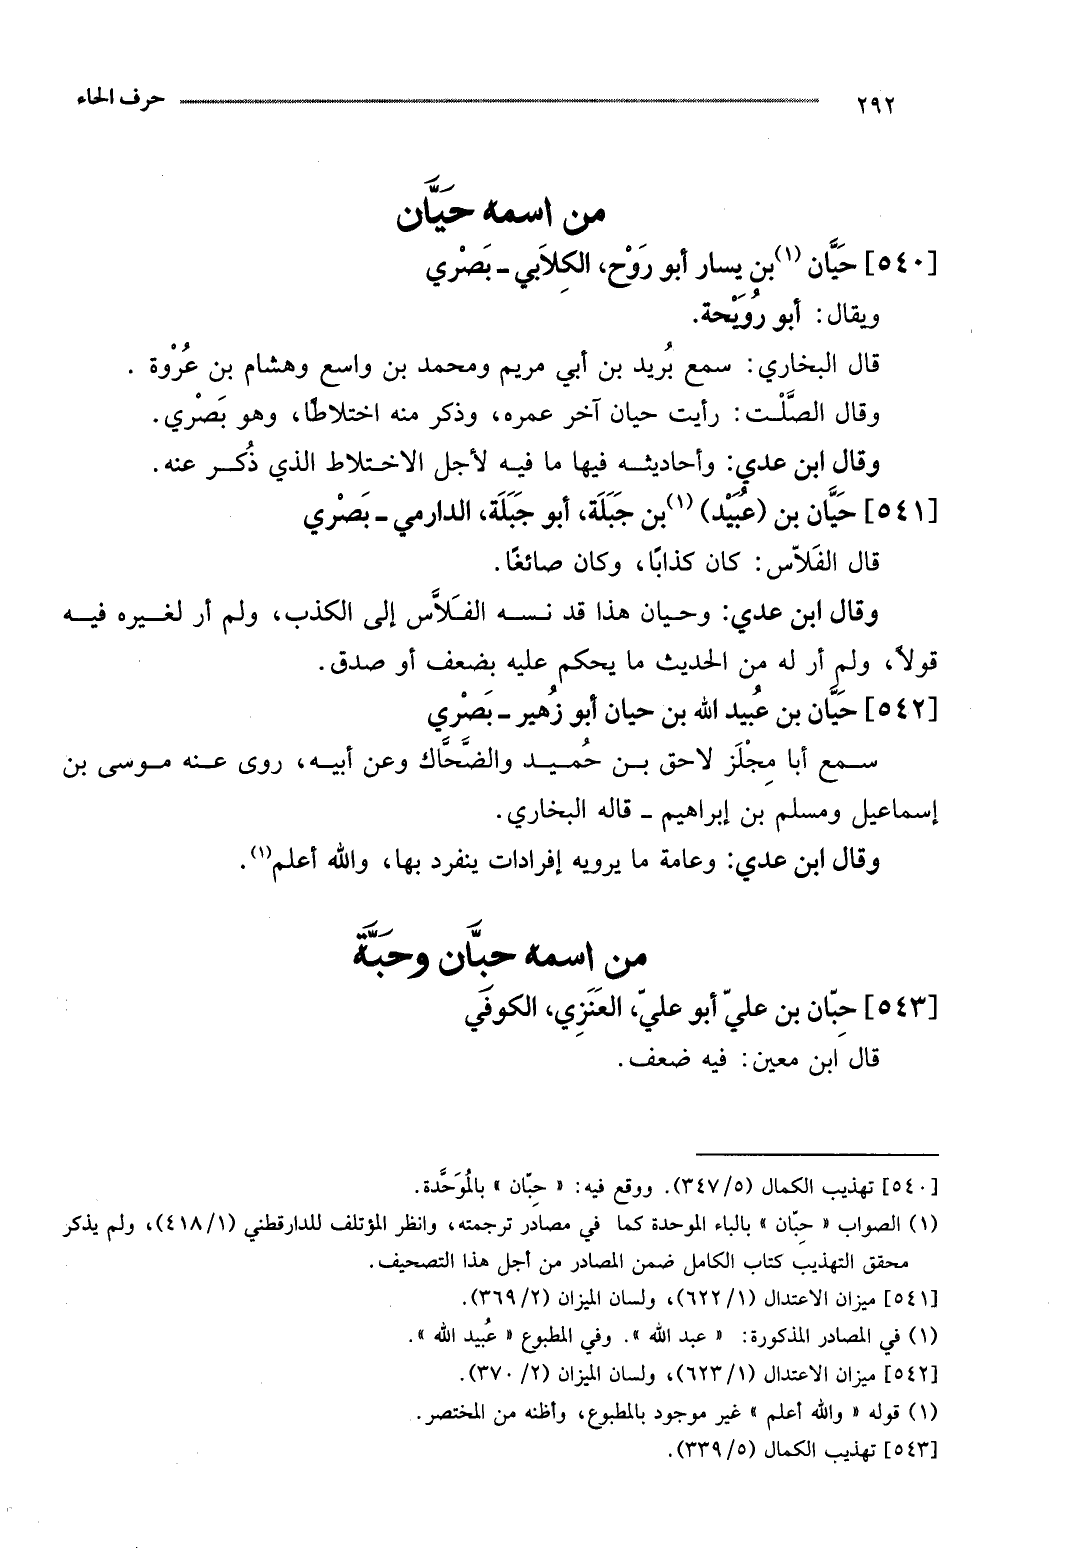 ٢٩٢ حرف الحاء
من اسمه حيَّان
[٥٤٠] حَيَّان (١) بن يسار أبو رَوْح، الكِلاَبي ـ بَصْري
ويقال: أبو رُوَيْحة.
قال البخاري: سمع بُريد بن أبي مريم ومحمد بن واسع وهشام بن عُرْوة .
وقال الصَّلْت: رأيت حيان آخر عمره، وذكر منه اختلاطًا، وهو بَصْري.
وقال ابن عدي: وأحاديثه فيها ما فيه لأجل الاختلاط الذي ذُكر عنه.
[٥٤١] حَيَّان بن (عُبَيْد) (١) بن جَبَلَة، أبو جَبَلَة، الدارمي ـ بَصْري
قال الفَلاّس: كان كذابًا، وكان صائغًا.
وقال ابن عدي: وحيان هذا قد نسبه الفَلاَّس إلى الكذب، ولم أر لغيره فيه
قولاً، ولم أر له من الحديث ما يحكم عليه بضعف أو صدق.
[٥٤٢] حَيَّان بن عُبيد الله بن حيان أبو زُهير ـ بَصْري
سمع أبا مِجْلَز لاحق بن حُميد والضَّحَّاك وعن أبيه، روى عنه موسى بن
إسماعيل ومسلم بن إبراهيم ـ قاله البخاري.
وقال ابن عدي: وعامة ما يرويه إفرادات ينفرد بها، والله أعلم (١).
من اسمه حبَّان وحَبَّة
[٥٤٣] حِبّان بن عليّ أبو عليّ، العَنَزِي، الكوفَي
قال ابن معين: فيه ضعف.
[٥٤٠] تهذيب الكمال (٣٤٧/٥). ووقع فيه: « حِبّان » بالمُوَحَّدة.
(١) الصواب « حِبّان » بالباء الموحدة كما في مصادر ترجمته، وانظر المؤتلف للدارقطني (٤١٨/١)، ولم يذكر
محقق التهذيب كتاب الكامل ضمن المصادر من أجل هذا التصحيف.
[٥٤١] ميزان الاعتدال (٦٢٢/١)، ولسان الميزان (٣٦٩/٢).
(١) في المصادر المذكورة: « عبد الله ». وفي المطبوع « عُبيد الله ».
[٥٤٢] ميزان الاعتدال (٦٢٣/١)، ولسان الميزان (٣٧٠/٢).
(١) قوله « والله أعلم » غير موجود بالمطبوع، وأظنه من المختصر.
[٥٤٣] تهذيب الكمال (٣٣٩/٥).